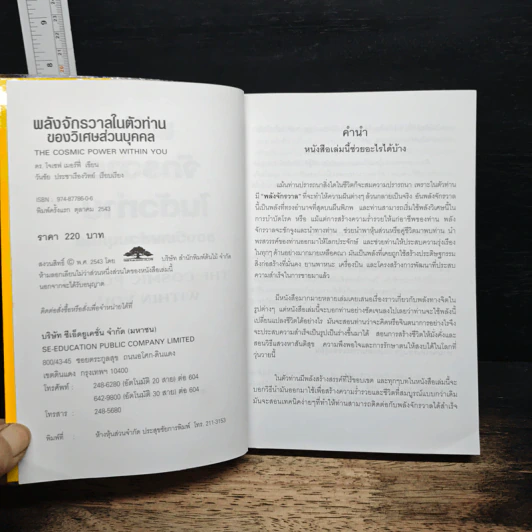 พลังจักรวาลในตัวท่าน
ของวิเศษส่วนบุคคล
THE COSMIC POWER WITHIN YOU
ดร. โจเซฟ เมอร์ฟี่ เขียน
วันชัย ประชาเรืองวิทย์ เรียบเรียง
ISBN 974-87786-0-6
พิมพ์ครั้งแรก ตุลาคม 2543
ราคา 220 บาท
สงวนลิขสิทธิ์ © พ.ศ. 2543 โดย บริษัท สำนักพิมพ์ต้นไม้ จำกัด
ห้ามลอกเลียนไม่ว่าส่วนหนึ่งส่วนใดของหนังสือเล่มนี้
นอกจากจะได้รับอนุญาต
ติดต่อสั่งซื้อหรือสั่งเพื่อจำหน่ายได้ที่
บริษัท ซีเอ็ดยูเคชั่น จำกัด (มหาชน)
SE-EDUCATION PUBLIC COMPANY LIMITED
800/43-45 ซอยตระกูลสุข ถนนอโศก-ดินแดง
เขตดินแดง กรุงเทพฯ 10400
โทรศัพท์ : 248-6280 (อัตโนมัติ 20 สาย) ต่อ 604
642-9800 (อัตโนมัติ 30 สาย) ต่อ 604
โทรสาร : 248-5680
พิมพ์ที่ : ห้างหุ้นส่วนจำกัด ประสุขชัยการพิมพ์ โทร. 211-3153
คำนำ
หนังสือเล่มนี้ช่วยอะไรได้บ้าง
แม้นท่านปรารถนาสิ่งใดในชีวิตก็จะสมความปรารถนา เพราะในตัวท่าน
มี "พลังจักรวาล" ที่จะทำให้ความฝันต่างๆ
นี้เป็นพลังที่ทรงอำนาจที่สุดบนผืนพิภพ และท่านสามารถเริ่มใช้พลังวิเศษนี้ใน
การบำบัดโรค หรือ แม้แต่การสร้างความร่ำรวยให้แก่อาชีพของท่าน พลัง
จักรวาลจะชักจูงและนำทางท่าน ช่วยนำพาหุ้นส่วนหรือคู่ชีวิตมาพบท่าน นำ
พรสวรรค์ของท่านออกมาให้โลกประจักษ์ และช่วยท่านให้ประสบความรุ่งเรือง
ในทุกๆ ด้านอย่างมากมายเหลือคณา มันเป็นพลังที่เคยถูกใช้สร้างประดิษฐกรรม
สิ่งก่อสร้างที่มั่นคง ยานพาหนะ เครื่องบิน และโครงสร้างการพัฒนาที่ประสบ
ความสำเร็จในการขายมาแล้ว
มีหนังสือมากมายหลายเล่มเคยเสนอเรื่องราวเกี่ยวกับพลังทางจิตใน
รูปต่างๆ แต่หนังสือเล่มนี้จะบอกท่านอย่างชัดเจนลงไปเลยว่าท่านจะใช้พลังนี้
เปลี่ยนแปลงชีวิตได้อย่างไร มันจะสอนท่านว่าจะคิดหรือจินตนาการอย่างไรจึง
จะประสบความสำเร็จเป็นรูปเป็นร่างขึ้นมาได้ สอนการสร้างชีวิตให้มั่งคั่งและ
สอนวิธีแสวงหาสันติสุข ความพึงพอใจและการรักษาตนให้สงบได้ในโลกที่
วุ่นวายนี้
ในตัวท่านมีพลังสร้างสรรค์ที่ไร้ขอบเขต และทุกๆบทในหนังสือเล่มนี้จะ
บอกวิธีนำมันออกมาใช้เพื่อสร้างความร่ำรวยและชีวิตที่สมบูรณ์แบบกว่าเดิม
มันจะสอนเทคนิคง่ายๆที่ทำให้ท่านสามารถติดต่อกับพลังจักรวาลได้สำเร็จ